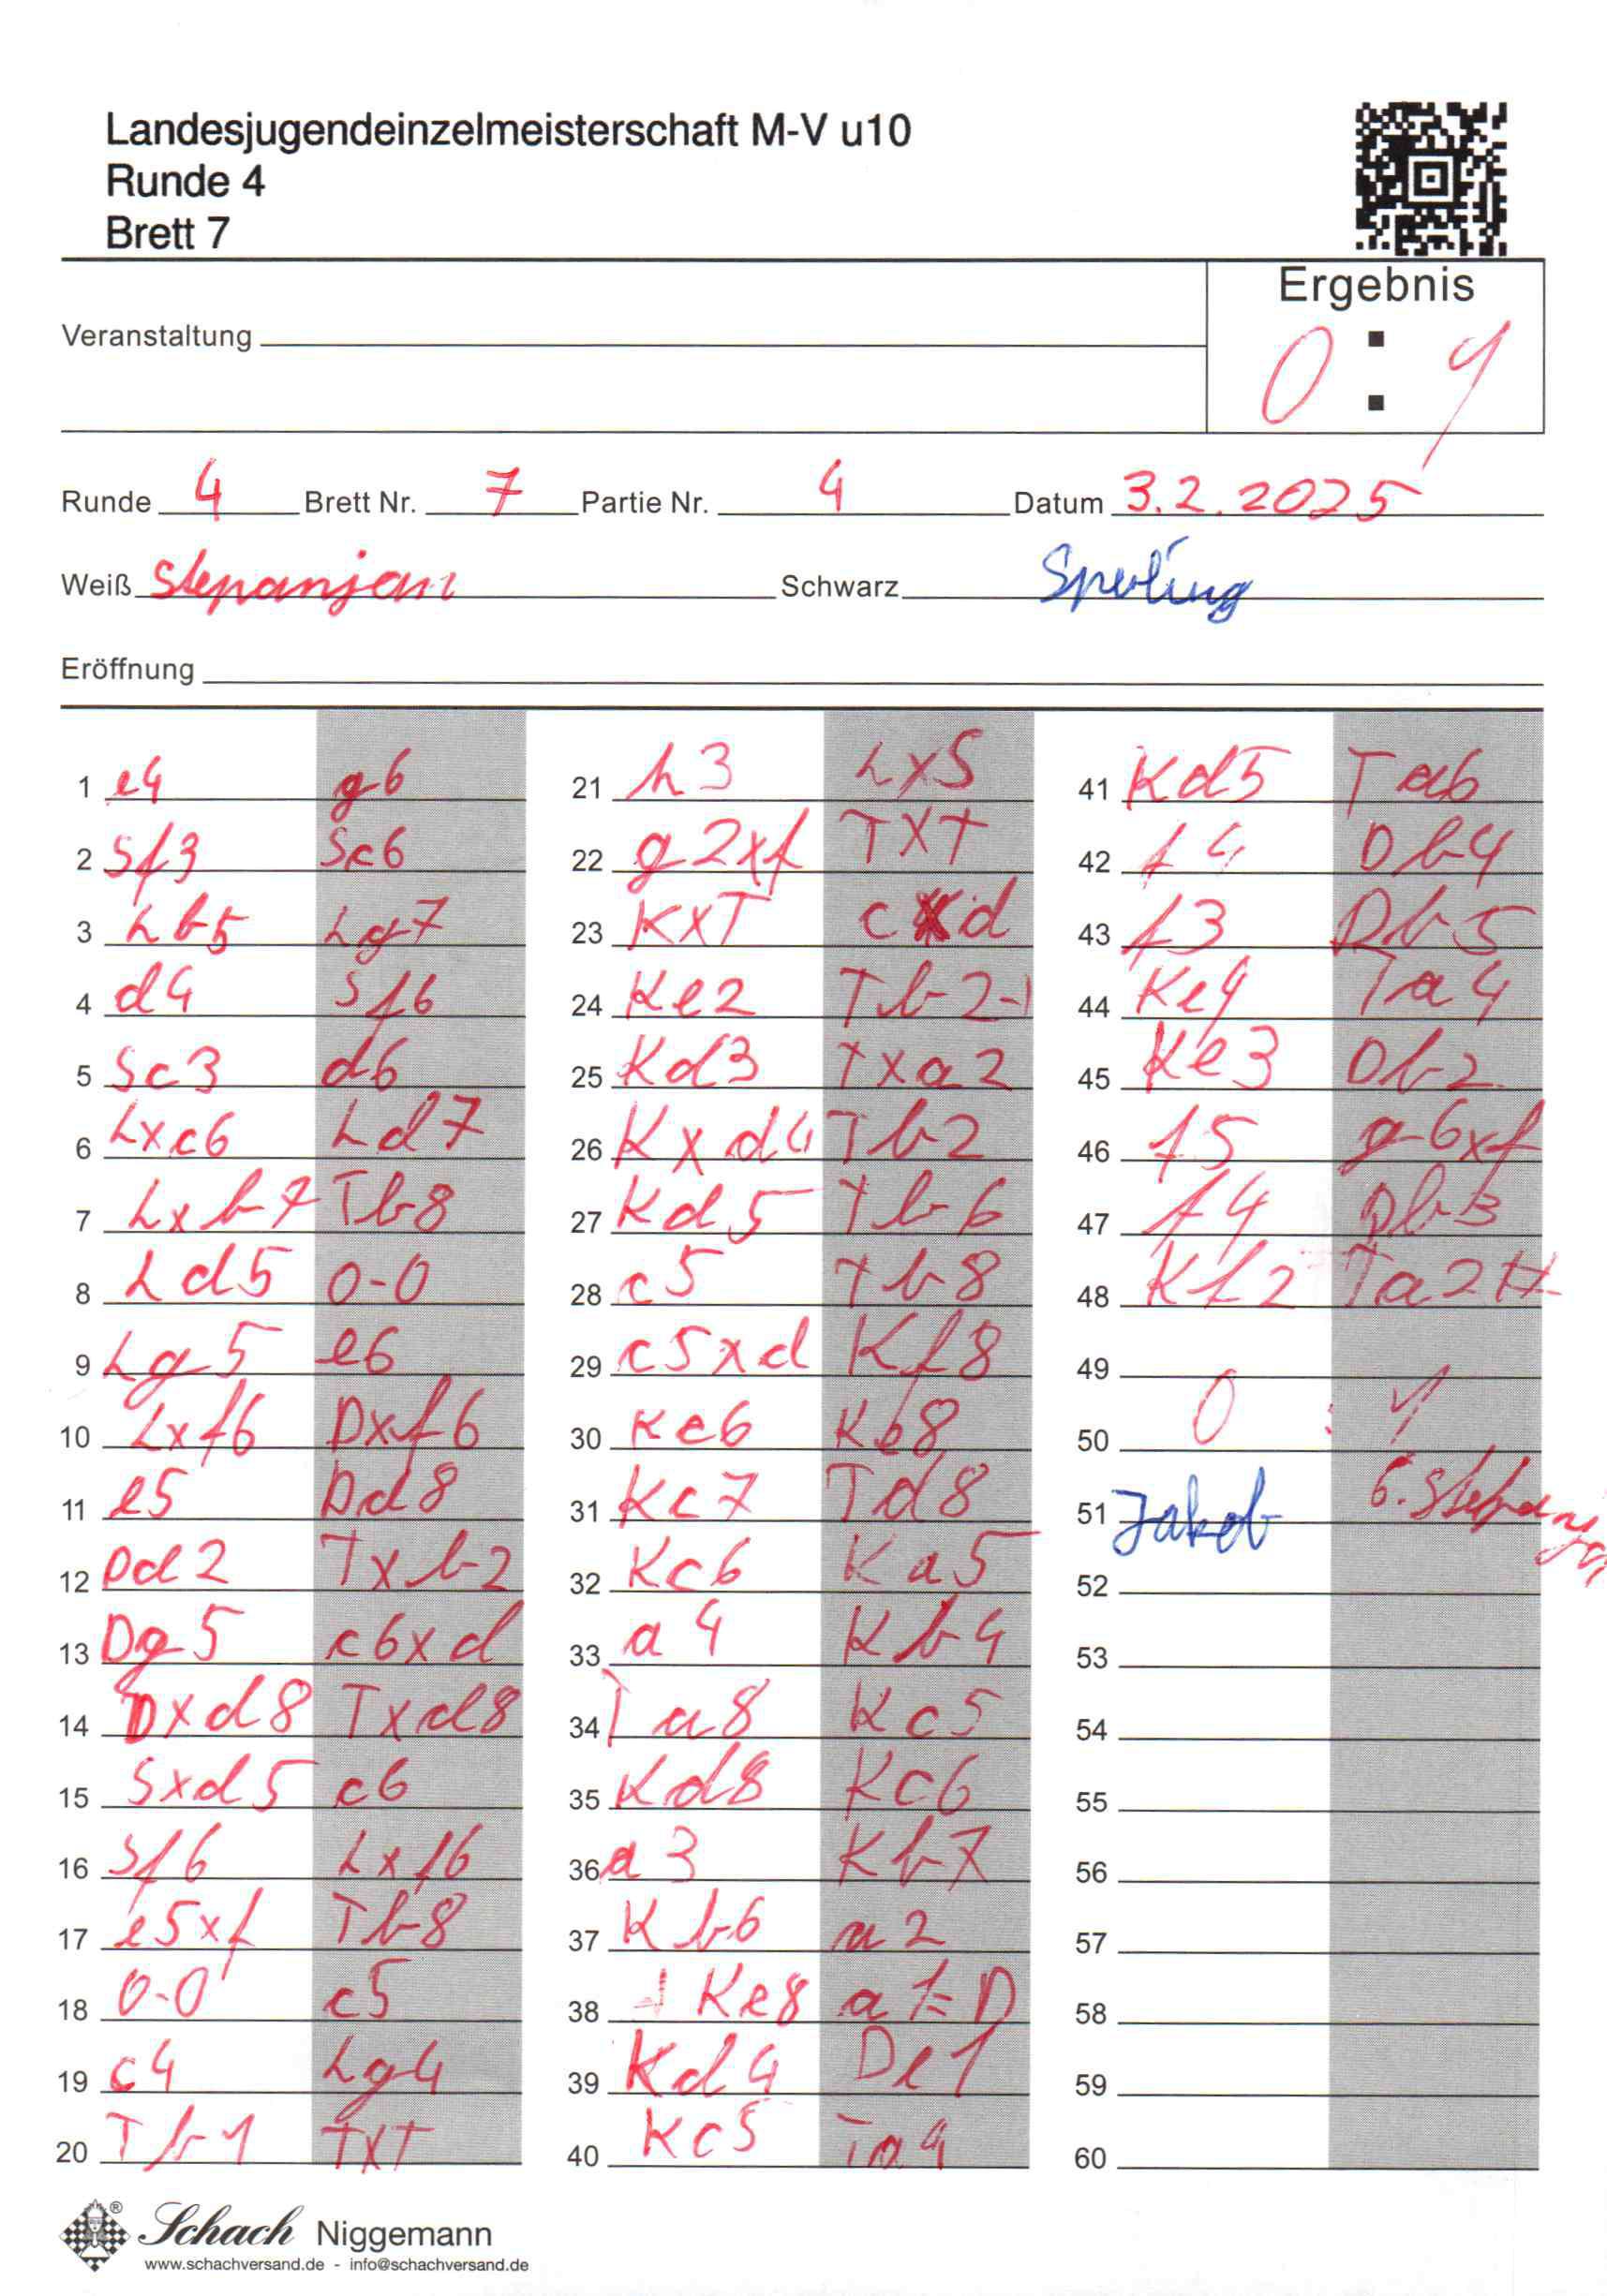 Landesjugendeinzelmeisterschaft M-V u10
Runde 4
Brett 7
Ergebnis
0 : 1
Veranstaltung
Runde 4 Brett Nr. 7 Partie Nr. 4 Datum 3.2.2025
Weiß Stepanjan Schwarz Sperling
Eröffnung
1 e4 g6
2 Sf3 Sc6
3 Lb5 Lg7
4 d4 Sf6
5 Sc3 d6
6 Lxc6 Ld7
7 Lxb7 Tb8
8 Ld5 0-0
9 Lg5 e6
10 Lxf6 Dxf6
11 e5 Dd8
12 Dd2 Txb2
13 Dg5 c6xd
14 Dxd8 Txd8
15 Sxd5 c6
16 Sf6 Lxf6
17 e5xf Tb8
18 0-0 c5
19 c4 Lg4
20 Tb1 TxT
21 h3 LxS
22 g2xf TXT
23 KXT cxd
24 Ke2 Tb2
25 Kd3 Txa2
26 Kxd4 Tb2
27 Kd5 Tb6
28 c5 Tb8
29 c5xd Kf8
30 Kc6 Ke8
31 Kc7 Td8
32 Kc6 Ka5
33 a4 Kb4
34 Ta8 Kc5
35 Kd8 Kc6
36 a3 Kb7
37 Kb6 a2
38 Ke8 a1=D
39 Kd4 De1
40 Kc5 Ta4
41 Kd5 Ta6
42 f4 Db4
43 f3 Db5
44 Ke4 Ta4
45 Ke3 Db2
46 f5 g6xf
47 f4 Db3
48 Kf2 Ta2#
49
50 0 : 1
51 Jakob G. Stepanjan
52
53
54
55
56
57
58
59
60
Schach Niggemann
www.schachversand.de - info@schachversand.de